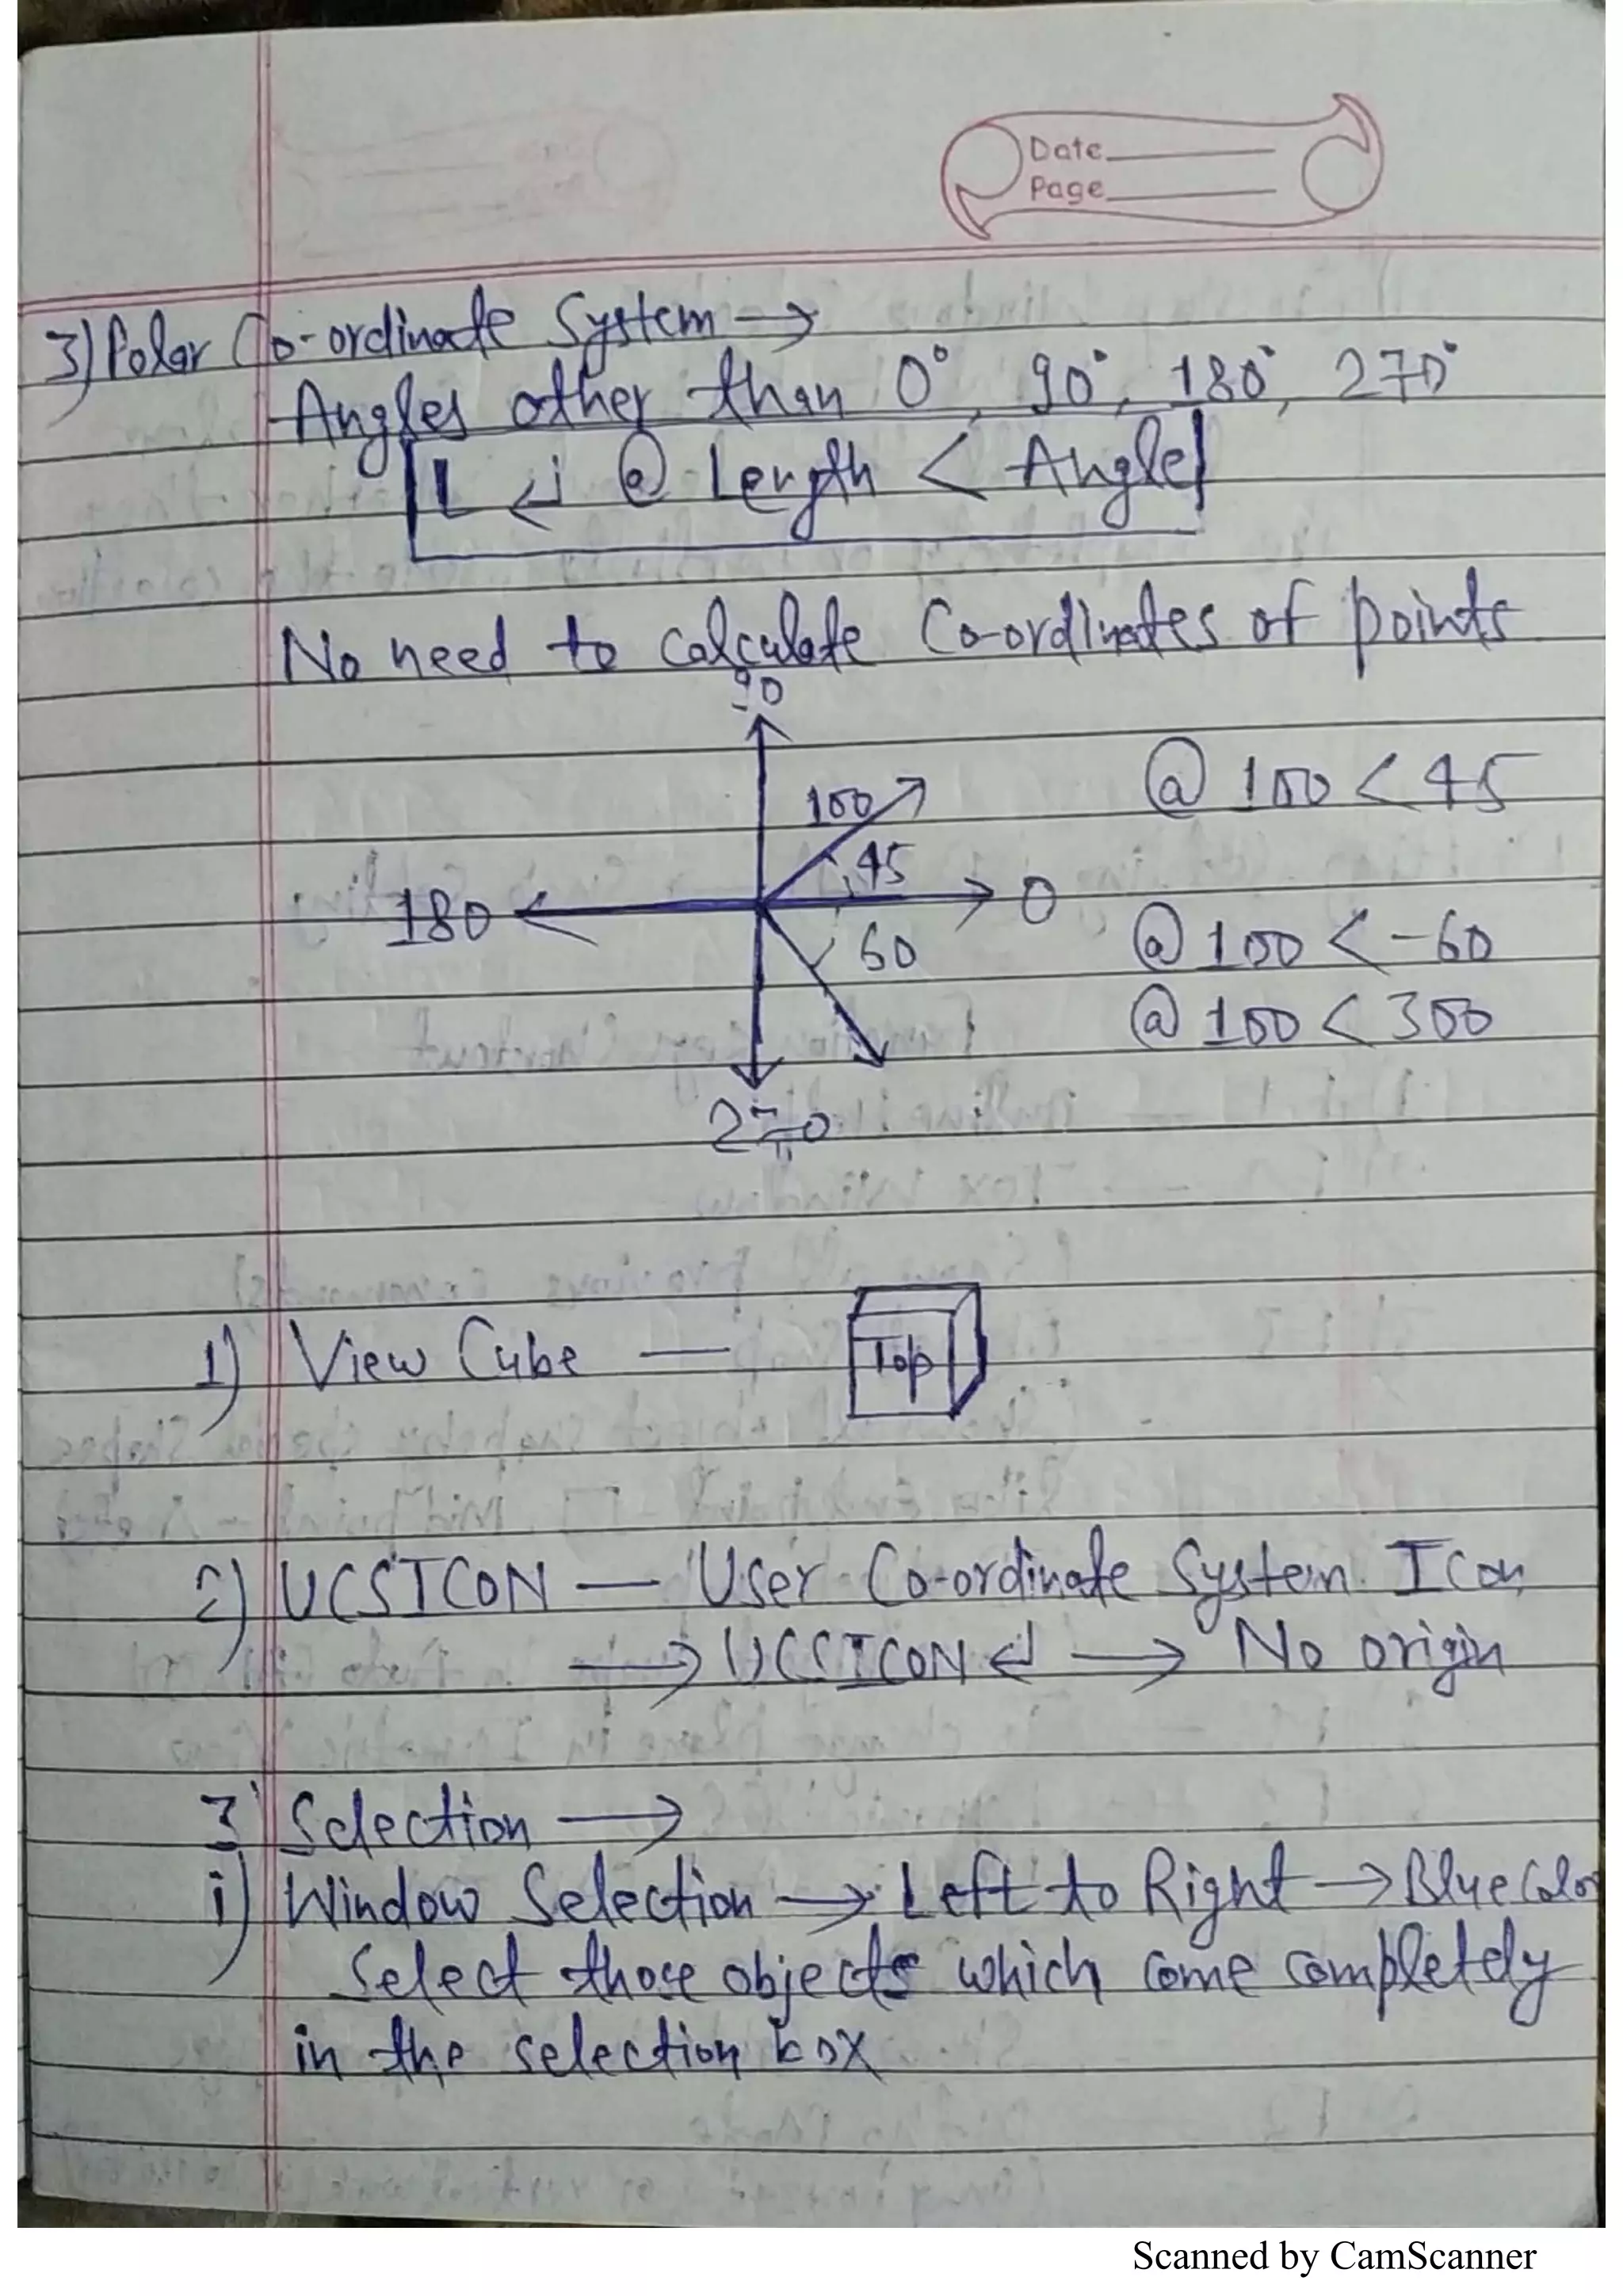 Date
Page
3) Polar Co-ordinate System →
Angles other than 0°, 90°, 180°, 270°
L ↲ @ Length < Angle
No need to calculate Co-ordinates of points
90
100
@ 100 < 45
45
180
0
60
@ 100 < -60
@ 100 < 300
270
1) View Cube —
Top
2) UCSICON — User Co-ordinate System Icon
→ UCSICON ↲ → No origin
3 Selection →
i) Window Selection → Left to Right → Blue Color
Select those objects which come completely
in the selection box
Scanned by CamScanner